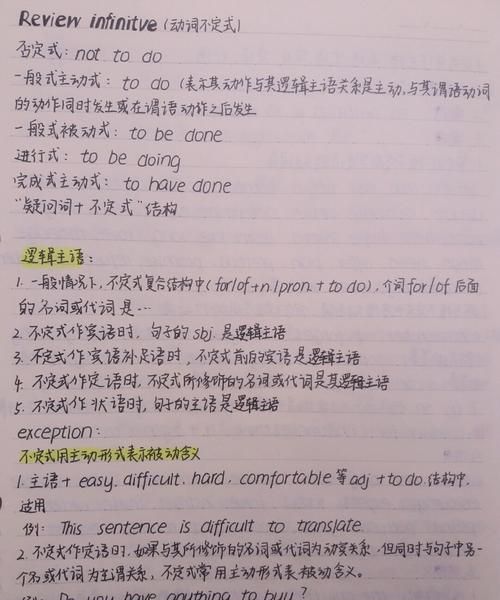 Review infinitve (动词不定式)
否定式: not to do
一般式主动式: to do (表示其动作与其逻辑主语关系是主动,与其谓语动词
的动作同时发生或在谓语动作之后发生
一般式被动式: to be done
进行式: to be doing
完成式主动式: to have done
"疑问词+不定式"结构
逻辑主语:
1. 一般情况下,不定式复合结构中(for/of+n./pron.+to do),介词for/of后面
的名词或代词是…
2. 不定式作宾语时,句子的sbj.是逻辑主语
3. 不定式作宾语补足语时,不定式前的宾语是逻辑主语
4. 不定式作定语时,不定式所修饰的名词或代词是其逻辑主语
5. 不定式作状语时,句子的主语是逻辑主语
exception:
不定式用主动形式表示被动含义
1. 主语+ easy. difficult. hard, comfortable 等adj +to do.结构中,
适用
例: This sentence is difficult to translate.
2. 不定式作定语时,如果与其所修饰的名词或代词为动宾关系,但同时与句子中另一
个名或代词为主谓关系,不定式常用主动形式表被动含义。
例: Do you have anything to buy?